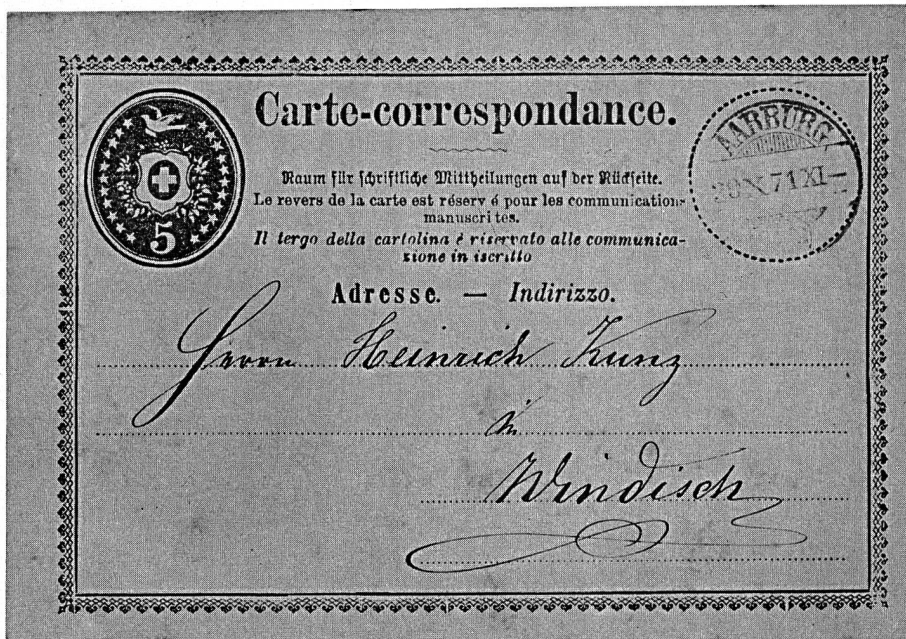 Carte-correspondance.
Raum für schriftliche Mittheilungen auf der Rückseite.
Le revers de la carte est réserv é pour les communication-
manuscrites.
Il tergo della cartolina è riservato alle communica-
zione in iscritto
Adresse. — Indirizzo.
5
AARBURG
71 XI—
Herrn Heinrich Kunz
in
Windisch